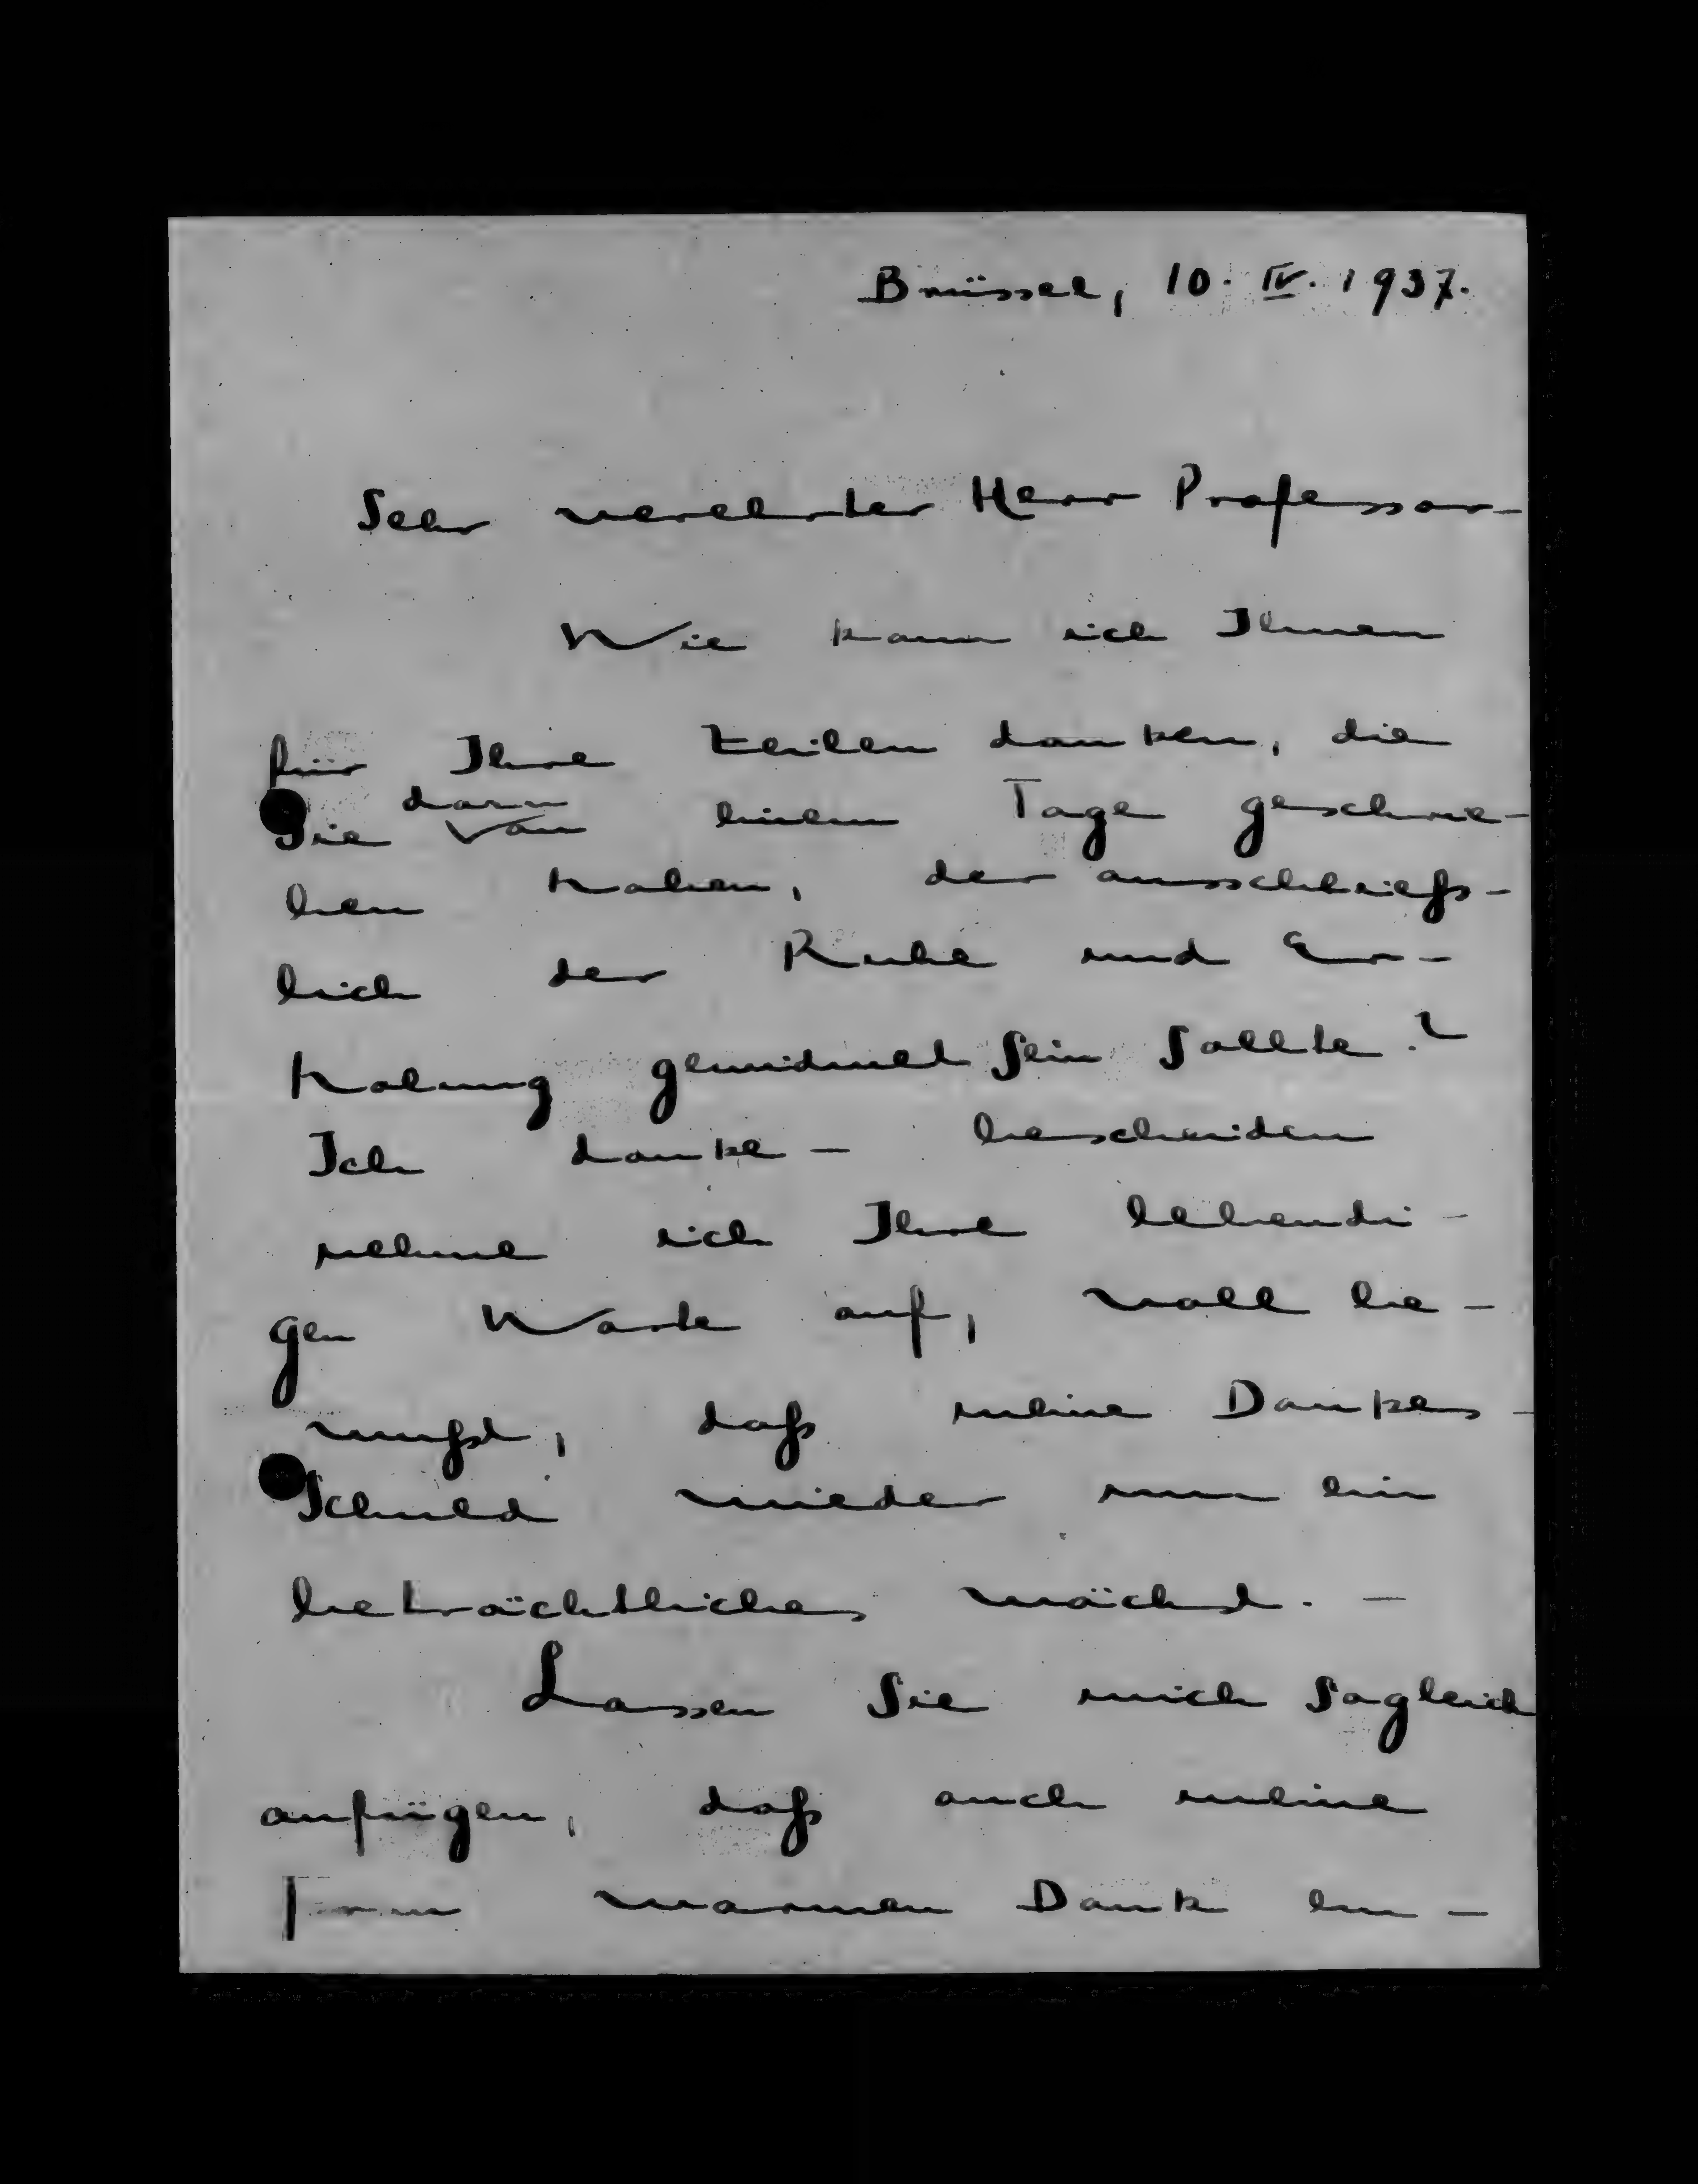 Brüssel, 10. IV. 1937.
Sehr verehrter Herr Professor –
Wie kann ich Ihnen
für Ihre Zeilen danken, die
Sie von einem Tage geschrie-
ben haben, der ausschließ-
lich der Ruhe und Er-
holung gewidmet sein sollte?
Ich danke – bescheiden
nehme ich Ihre lebendi-
gen Worte auf, voll be-
wußt, daß meine Dankes-
Schuld wieder um ein
beträchtliches wächst. –
Lassen Sie mich sogleich
anfügen, daß auch meine
Frau warmen Dank em-